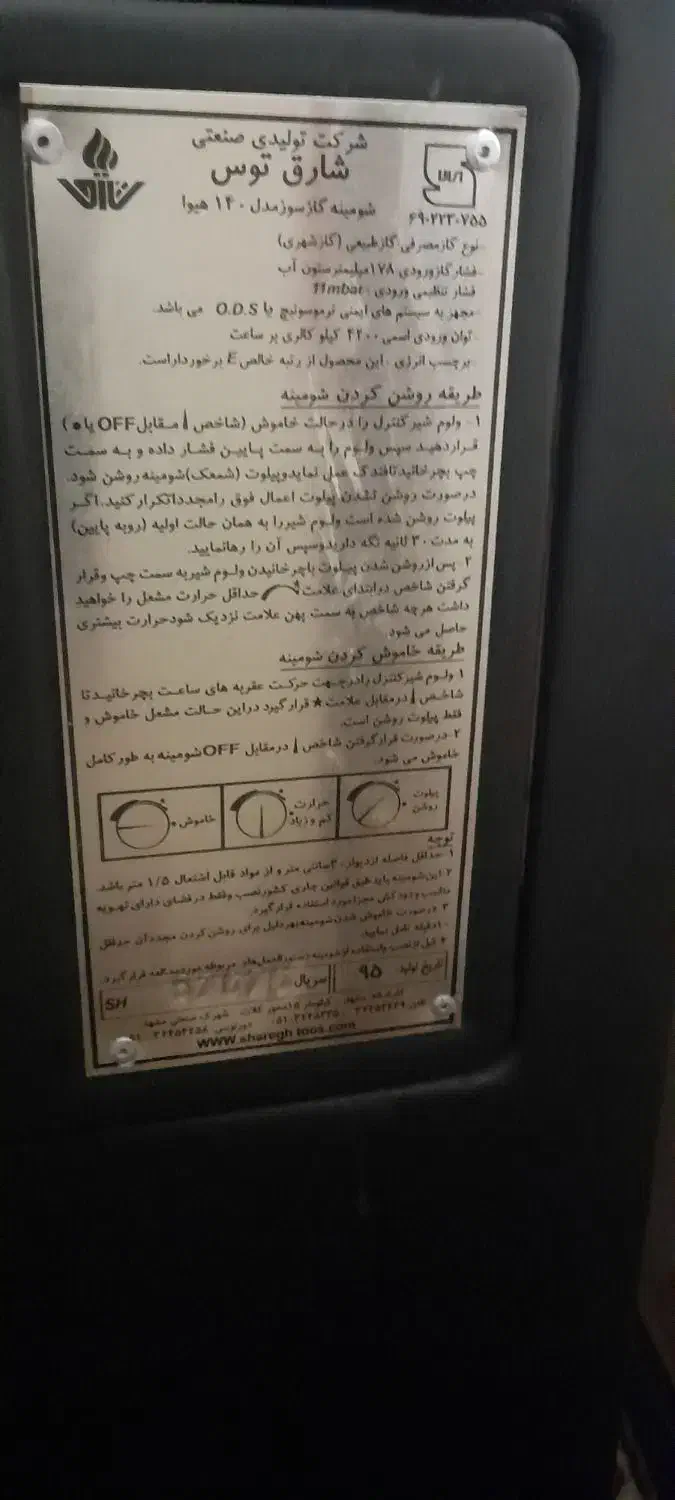 شرکت تولیدی صنعتی
شارق توس
شومینه گازسوزمدل ۱۴۰ هیوا
۶۹۰۲۲۳۰۷۵۵
نوع گازمصرفی گازطبیعی (گازشهری)
فشارگازورودی ۱۷۸میلیمترستون آب
فشار تنظیمی ورودی ۱۱mbar
-مجهز به سیستم های ایمنی ترموسوئیچ یا O.D.S می باشد.
توان ورودی اسمی ۴۲۰۰ کیلو کالری بر ساعت
برچسب انرژی : این محصول از رتبه خالص E برخورداراست.
طریقه روشن کردن شومینه
۱- ولوم شیرکنترل را درحالت خاموش (شاخص مقابل OFF یا ●)
قراردهید سپس ولوم را به سمت پایین فشار داده و به سمت
چپ بچرخانیدتافندک عمل نمایدوپیلوت (شمعک)شومینه روشن شود.
درصورت روشن نشدن پیلوت اعمال فوق رامجدداتکرارکنید.اگر
پیلوت روشن شده است ولوم شیررا به همان حالت اولیه (روبه پایین)
به مدت ۳۰ ثانیه نگه داریدوسپس آن را رهانمایید.
۲ پس ازروشن شدن پیلوت باچرخانیدن ولوم شیربه سمت چپ وقرار
گرفتن شاخص درابتدای علامت حداقل حرارت مشعل را خواهید
داشت هرچه شاخص به سمت پهن علامت نزدیک شودحرارت بیشتری
حاصل می شود
طریقه خاموش کردن شومینه
۱ ولوم شیرکنترل رادرجهت حرکت عقربه های ساعت بچرخانیدتا
شاخص درمقابل علامت ★ قرارگیرد دراین حالت مشعل خاموش و
فقط پیلوت روشن است.
۲-درصورت قرارگرفتن شاخص درمقابل OFF شومینه به طورکامل
خاموش می شود.
پیلوت روشن
حرارت کم و زیاد
خاموش
توجه
۱ حداقل فاصله ازدیوار، ۳سانتی متر و از مواد قابل اشتعال ۱/۵ متر باشد.
۲-این شومینه باید طبق قوانین جاری کشورنصب وفقط درفضای دارای تهویه
مناسب ودودکش مجزامورد استفاده قرارگیرد.
۳ درصورت خاموش شدن شومینه بهردلیل برای روشن کردن مجددآن حداقل
۱۰دقیقه تامل نمایید.
۴ قبل ازنصب واستفاده ازشومینه دستورالعمل های مربوطه موردمطالعه قرارگیرد.
تاریخ تولید ۹۵ سریال SH
کارخانه مشهد کیلومتر ۱۵محور کلات شهرک صنعتی مشهد
www.sharegh-toos.com